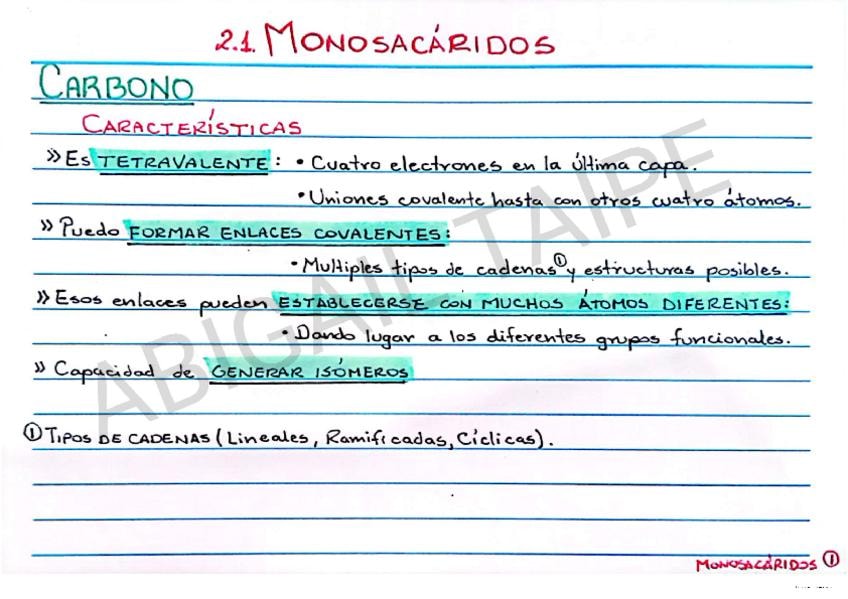 2.1. MONOSACÁRIDOS
CARBONO
CARACTERÍSTICAS
» Es TETRAVALENTE: • Cuatro electrones en la última capa.
• Uniones covalente hasta con otros cuatro átomos.
» Puedo FORMAR ENLACES COVALENTES:
• Multiples tipos de cadenas① y estructuras posibles.
» Esos enlaces pueden ESTABLECERSE CON MUCHOS ÁTOMOS DIFERENTES:
• Dando lugar a los diferentes grupos funcionales.
» Capacidad de GENERAR ISÓMEROS
① TIPOS DE CADENAS (Lineales, Ramificadas, Cíclicas).
MONOSACÁRIDOS ①
ABIGAIL TAIPE